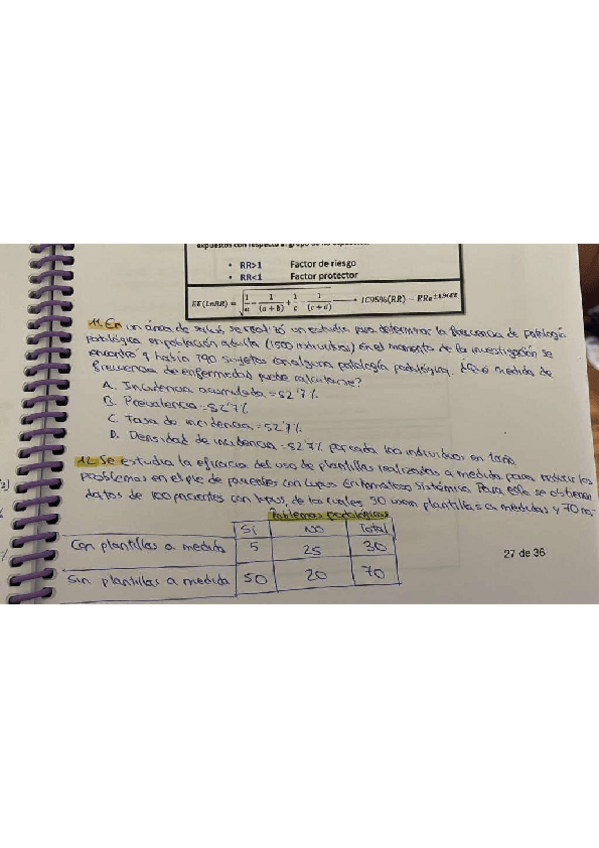 expuestos con respecto al grupo de no expuestos.
• RR>1 Factor de riesgo
• RR<1 Factor protector
EE(LnRR) = √ 1/a - 1/(a+b) + 1/c - 1/(c+d) IC95%(RR) = RRe^±1.96EE
11. En un área de salud se realizó un estudio para determinar la frecuencia de patología
podológica en población adulta (1500 individuos) En el momento de la investigación se
encontró q había 790 sujetos con alguna patología podológica. ¿Qué medida de
frecuencia de enfermedad puede calcularse?
A. Incidencia acumulada = 52'7%
B. Prevalencia = 52'7%
C. Tasa de incidencia = 52'7%
D. Densidad de incidencia = 52'7% por cada 100 individuos en 1 año
12. Se estudia la eficacia del uso de plantillas realizadas a medida para reducir los
problemas en el pie de pacientes con Lupus Eritematoso Sistémico. Para ello se obtienen
datos de 100 pacientes con lupus, de los cuales 30 usan plantillas a medidas y 70 no.
Problemas podológicos
Sí NO Total
Con plantillas a medida 5 25 30
Sin plantillas a medida 50 20 70
27 de 36